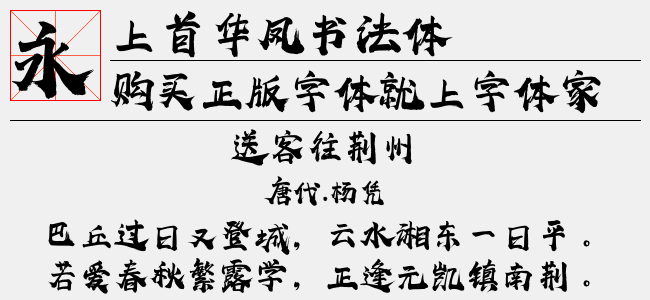 永
上首华凤书法体
购买正版字体就上字体家
送客往荆州
唐代.杨凭
巴丘过日又登城，云水湘东一日平。
若爱春秋繁露学，正逢元凯镇南荆。